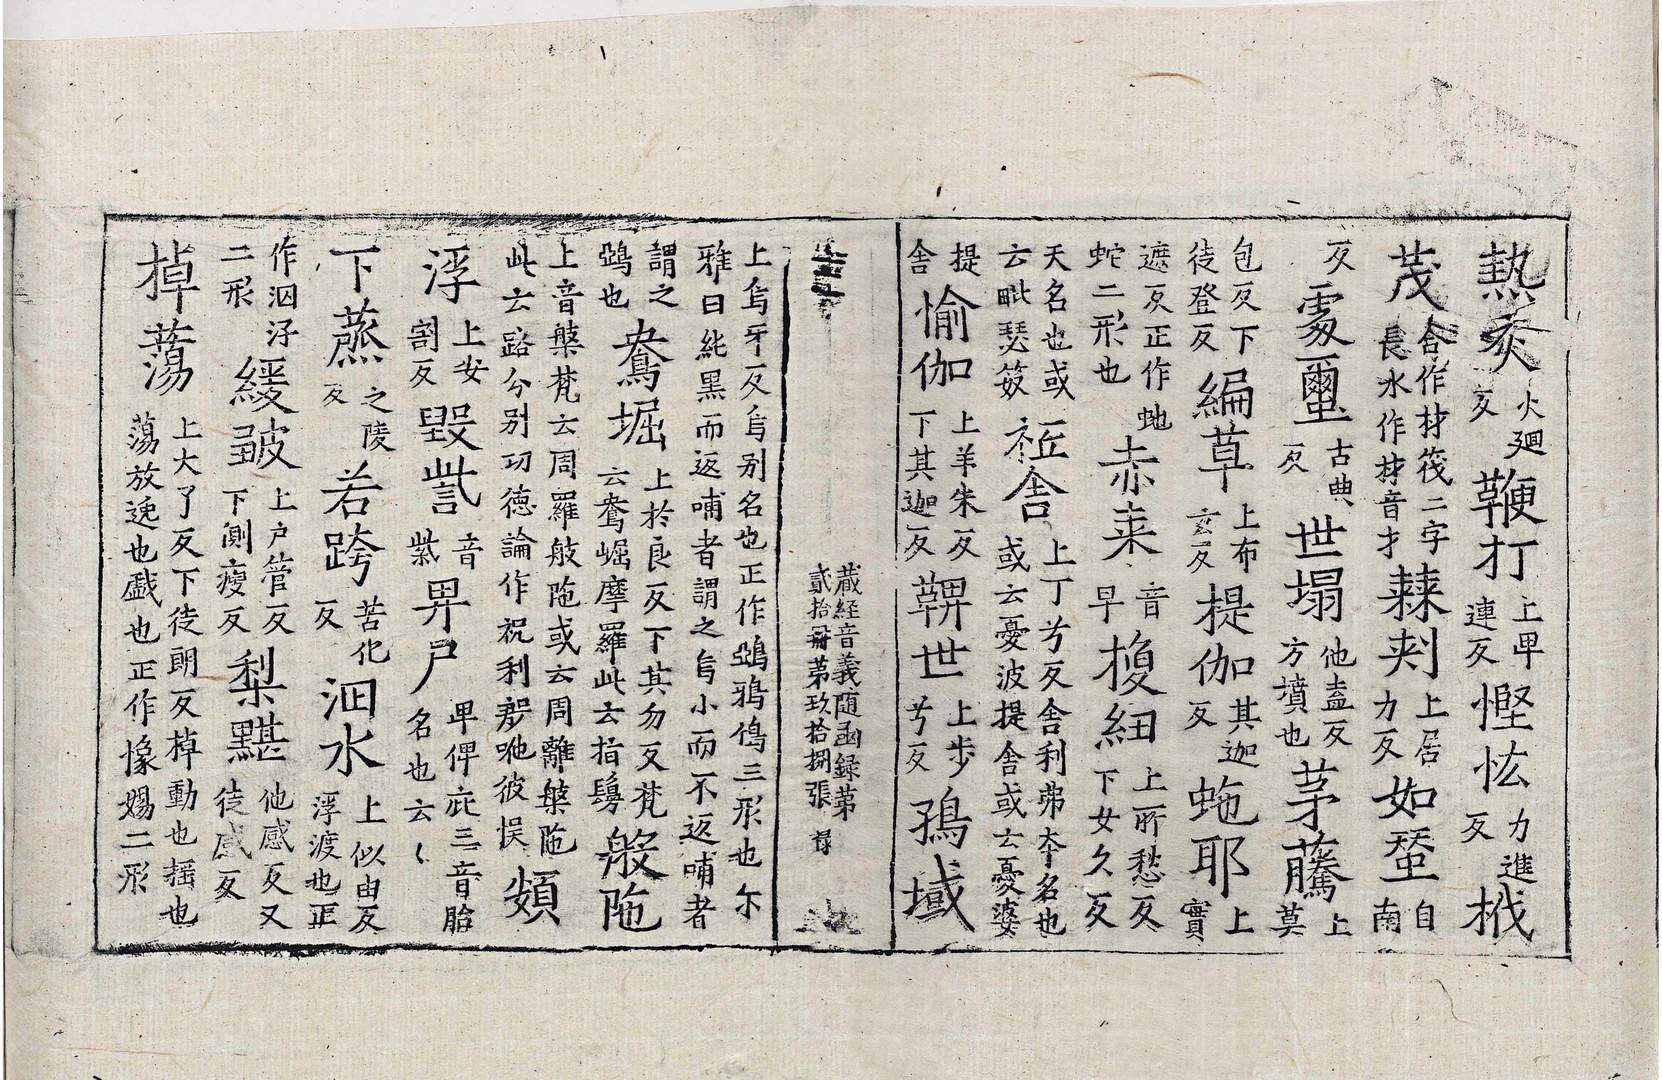 熱炙火廻反鞕打上卑連反慳恡力進反栰
茂舍作材筏二字長水作材音才蕀刾上居力反如蝅自南
反䨱壐古典反世塌他盍反方墳也茅䕨上莫
包反下徒登反編草上布玄反提伽其迦反虵耶上實
遮反正作虵蛇二形也赤来音早榎紐上所愁反下女久反
天名也或云毗瑟笯袛舍上丁兮反舍利弗本名也或云憂波提舍或云憂婆
提舍愉伽上羊朱反下其迦反鞞世上步兮反鵶域
藏経音義随函録第貳拾冊第玖拾捌張
上烏牙反烏别名也正作鵶鴉鴋三形也尒雅曰純黑而返哺者謂之烏小而不返哺者
謂之鵶也鴦堀上於良反下其勿反梵云鴦崛摩羅此云指鬘般陁
上音槃梵云周羅般陁或云周離槃陁此云路分別功德論作祝利槃咃彼悮頞
浮上安割反毀訾音紫畀尸卑俾庇三音胎名也云〻
下蒸之陵反若跨苦化反泅水上似由反浮渡也正
作泅汓二形緩皷上户管反下側瘦反梨黮他感反又徒感反
掉蕩上大了反下徒朗反掉動也揺也蕩放逸也戲也正作㨾婸二形